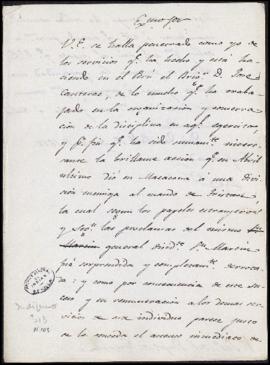 Exmo Sor
V.E. se halla penetrado como yo de
los servicios qe. ha hecho y está ha-
ciendo en el Perú el Brigr. D. José
Canterac, de lo mucho qe. ha traba-
jado en la organización y conserva-
ción de la disciplina en aql. egercito,
y pr. fin qe. ha sido sumamte. intere-
sante la brillante acción qe. en Abril
ultimo dió en Macacona á una Divi-
sión enemiga al mando de Tristan,
la cual segun los papeles extrangeros
y las proclamas del mismo
general San Martin
fué sorprendida y completamte. derrota-
da: y como por consecuencia de este su-
ceso y en remuneración a los demas ser-
vicios de ese individuo parece justo
se le conceda el acenso inmediato de